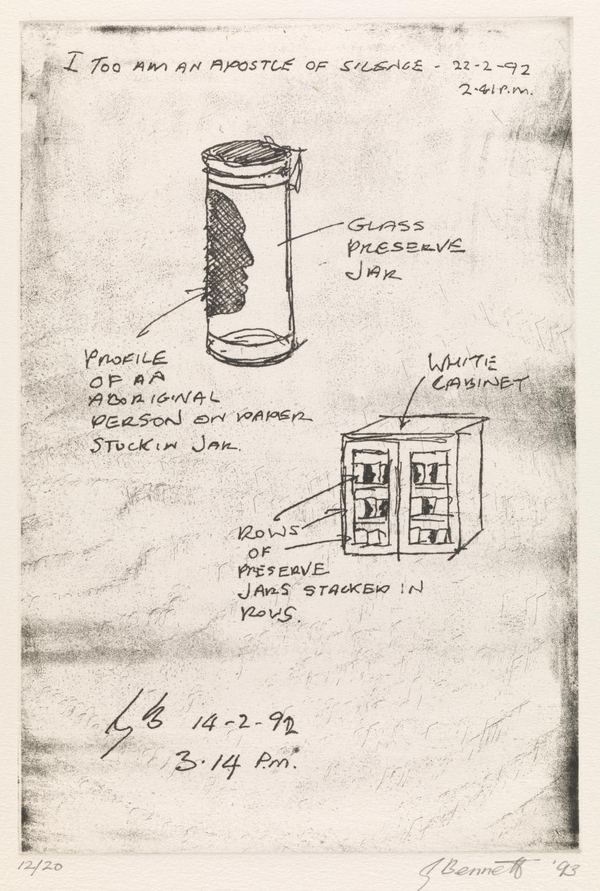 I TOO AM AN APOSTLE OF SILENCE - 22-2-92
2.41 P.M.
GLASS
PRESERVE
JAR
PROFILE
OF AN
ABORIGINAL
PERSON ON PAPER
STUCK IN JAR.
WHITE
CABINET
ROWS
OF
PRESERVE
JARS STACKED IN
ROWS.
GB 14-2-92
3.14 P.M.
12/20
G Bennett '93